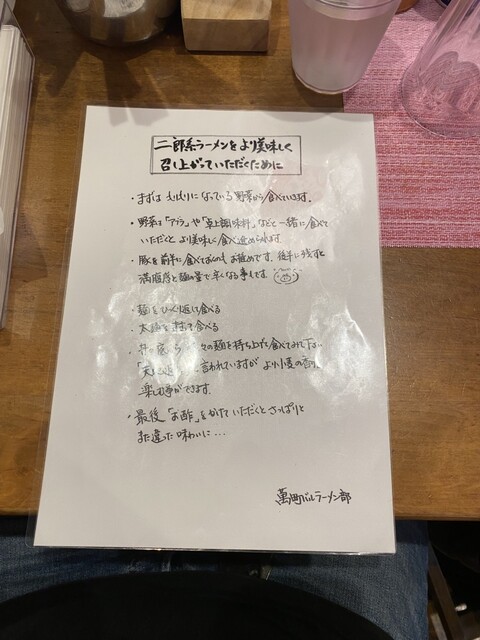 二郎系ラーメンをより美味しく
召し上がっていただくために
・まずは 山もりになっている野菜から食べていきます。
・野菜は「アブラ」や「卓上調味料」などと一緒に食べて
いただくと より美味しく食べ進められます
・豚を前半に食べておくのも お勧めです。後半に残すと
満腹度と麺の量で辛くなる事もしばしばです
・麺をひっくり返して食べる
・太麺を 食べる
・丼の底から 々の麺を持ち上げて食べてみて下さい
「天地返し」 言われていますが より小麦の香りを
楽しむ事ができます。
・最後「お酢」をかけていただくと さっぱりと
また違った味わいに…
萬町バルラーメン部